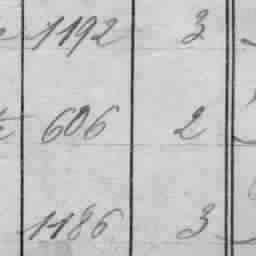 1192 3
606 2
1186 3